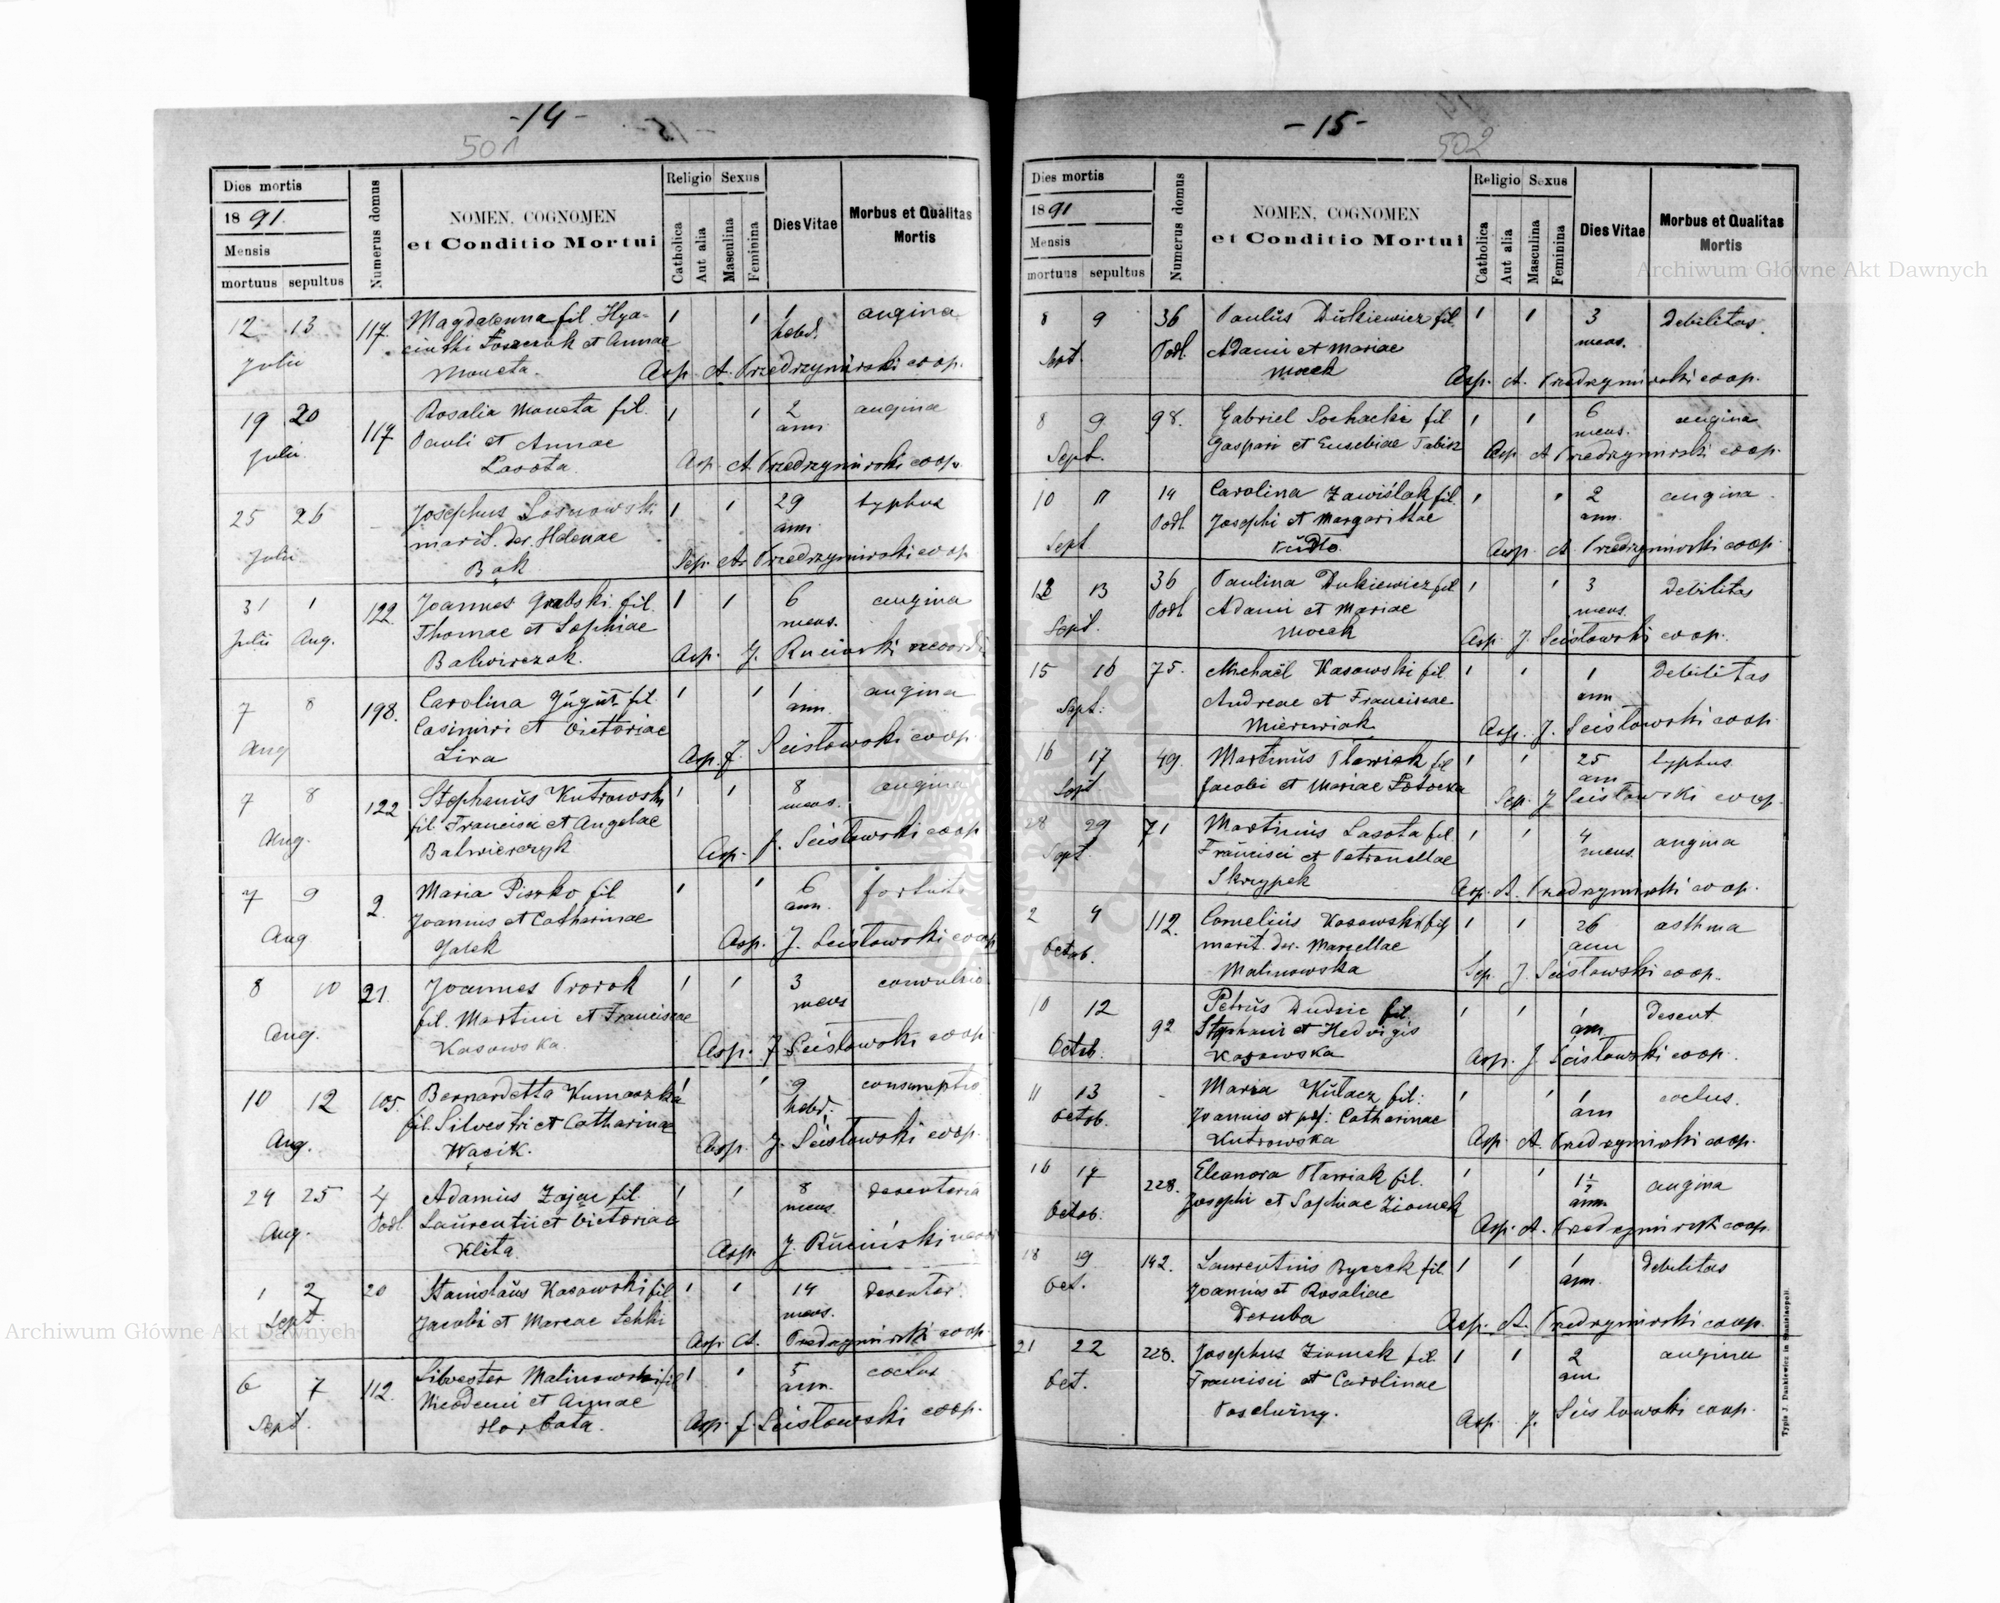 -14-
501
Dies mortis
1891.
Mensis
mortuus sepultus
Numerus domus
NOMEN, COGNOMEN
et Conditio Mortui
Religio Sexus
Catholica
Aut alia
Masculina
Feminina
Dies Vitae
Morbus et Qualitas
Mortis
12 13 117. Magdalenna fil. Hya- 1 1 1 angina
hebd.
Julii
Moneta. Asp. A. Przedrzymirski coop.
19 20 117 Rosalia Moneta fil. 1 1 2 angina
Julii. Pauli et Annae ann.
Lasota. Asp. A. Przedrzymirski coop.
25 26 Josephus Sosnowski 1 1 29 typhus
marit. der. Helenae ann.
Julii Bąk Sep. A. Przedrzymirski coop
31 1 122. Joannes Grabski fil. 1 1 6 angina
Julii Aug. Thomae et Sophiae mens.
Balwierczak. Asp. J. Ruciński
7 8 198. Carolina Gugut fil. 1 1 1 angina
Aug Casimiri et Victoriae ann.
Lira Asp. J. Scisłowski coop.
7 8 122 Stephanus Kutrowski 1 1 8 angina
fil. Francisci et Angelae mens.
Aug. Balwierczyk Asp. J. Scisłowski coop
7 9 2. Maria Piszko fil 1 1 6
Aug Joannis et Catharinae ann.
Gałek Asp. J. Scisłowski coop
8 10 21. Joannes Prorok 1 1 3 convulsio
Aug. fil. Martini et Franciscae mens
Kasowska. Asp. J. Scisłowski coop
10 12 105. Bernardetta Kumaszka 1 1 9 consumptio
fil. Silvestri et Catharinae hebd.
Aug. Wącik. Asp. J. Scisłowski coop.
24 25 4 Adamus Zając fil. 1 1 8 desenteria
Aug. Podl Laurentii et Victoriae mens.
Klita Asp. J. Ruciński
1 2 20 Stanislaus Kasowski fil 1 1 14 desenter.
Sept. Jacobi et Mareae mens.
Asp. A. Przedrzymirski coop.
6 7 112. Silvester Malinowski fil 1 1 5 coclus
Nicodemi et Annae ann.
Sept. Horbata. Asp. J. Scisłowski coop.
-15-
502
Dies mortis
1891
Mensis
mortuus sepultus
Numerus domus
NOMEN, COGNOMEN
et Conditio Mortui
Religio Sexus
Catholica
Aut alia
Masculina
Feminina
Dies Vitae
Morbus et Qualitas
Mortis
8 9 36 Paulus Dukiewicz fil. 1 1 3 debilitas.
Sept. Podl. Adami et Mariae mens.
Mocek Asp. A. Przedrzymirski coop.
8 9 98. Gabriel Sochacki fil 1 1 6 angina
Sept. Gaspari et Eusebiae Tabisz mens.
Asp. A. Przedrzymirski coop.
10 11 14 Carolina Zawiślak fil. 1 1 2 angina
Podl Josephi et Margarittae ann.
Sept Pudło. Asp. A. Przedrzymirski coop.
12 13 36 Paulina Dukiewicz fil 1 1 3 debilitas
Podl Adami et Mariae mens.
Sept. Mocek Asp. J. Scisłowski coop.
15 16 75. Michaël Kasowski fil. 1 1 1 debilitas
Sept. Andreae et Franciscae ann
Mierzwiak Asp. J. Scisłowski coop.
16 17 49. Martinus Pławiak fil 1 1 25 typhus.
Sept Jacobi et Mariae Potocka ann
Sep. J. Scisłowski coop.
28 29 71 Martinus Lasota fil. 1 1 4 angina
Sept. Francisci et Petronellae mens.
Skrzypek Asp. A. Przedrzymirski coop.
2 4 112. Cornelius Kasowski fil 1 1 26 asthma
Octob. marit. der. Marcellae ann
Malinowska Sep. J. Scisłowski coop.
10 12 92 Petrus Dudzic fil. 1 1 1 desent.
Stephani et Hedvigis ann.
Octob. Kasowska Asp. J. Scisłowski coop.
11 13 - Maria Kułacz fil. 1 1 1 coclus.
Octob. Joannis et Catharinae ann
Kutrowska Asp. A. Przedrzymirski coop.
16 17 228. Eleanora Pławiak fil. 1 1 1½ angina
Octob. Josephi et Sophiae Ziomek ann.
Asp. A. Przedrzymirski coop.
18 19 142. Laurentius Ryczek fil. 1 1 1 debilitas
Oct. Joannis et Rosaliae ann.
Deruba Asp. A. Przedrzymirski coop.
21 22 228. Josephus Ziomek fil. 1 1 2 angina
Oct. Francisci et Carolinae ann.
Asp. J. Scisłowski coop.
Typis J. Dankiewicz in Stanislaopoli.
Archiwum Główne Akt Dawnych
Archiwum Główne Akt Dawnych